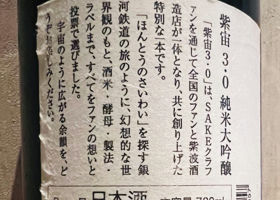 紫宙3・0 純米大吟醸
「紫宙3・0」は、SAKEクラフ
ァンを通じて全国のファンと紫波酒
造店が一体となり、共に創り上げた
特別な一本です。
「ほんとうのさいわい」を探す銀
河鉄道の旅のように、幻想的な世
界観のもと、酒米・酵母・製法・
ラベルまで、すべてをファンの想いと
投票で選びました。
宇宙のように広がる余韻を、ど
うぞお楽しみください。
日本酒